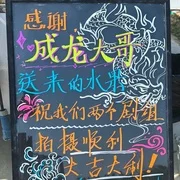 感谢
成龙大哥
送来的水果
祝我们两个剧组
拍摄顺利
大吉大利!